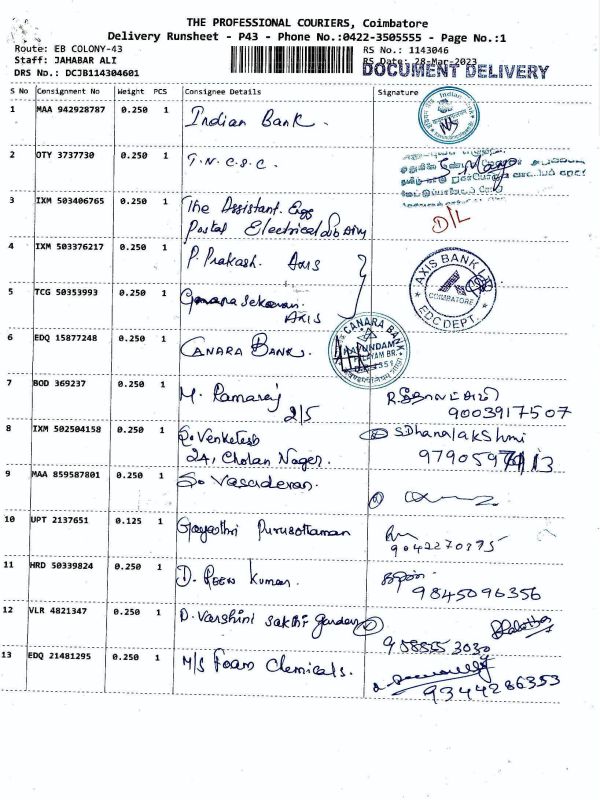 THE PROFESSIONAL COURIERS, Coimbatore
Delivery Runsheet - P43 - Phone No.:0422-3505555 - Page No.:1
Route: EB COLONY-43
RS No.: 1143046
Staff: JAHABAR ALI
RS Date: 28-Mar-2023
DRS No.: DCJB114304601
DOCUMENT DELIVERY
S No Consignment No Weight PCS Consignee Details Signature
1 MAA 942928787 0.250 1 Indian Bank.
2 OTY 3737730 0.250 1 T.N.C.S.C.
3 IXM 503406765 0.250 1 The Assistant. Egg
Postal Electrical
D/L
4 IXM 503376217 0.250 1 P. Prakash. Axis
AXIS BANK
COIMBATORE
EDC DEPT.
5 TCG 50353993 0.250 1
AXIS
6 EDQ 15877248 0.250 1 CANARA BANK.
CANARA BANK
7 BOD 369237 0.250 1 M. Ramaraj
2/5
9003917507
8 IXM 502504158 0.250 1 S. Venketesh
24, Cholan Nager.
S Dhanalakshmi
9 MAA 859587801 0.250 1 S. Vasudevan.
10 UPT 2137651 0.125 1 Gayathri Purusottaman
11 HRD 50339824 0.250 1 D. Kumar.
9845096356
12 VLR 4821347 0.250 1 D. Varshini sakthi garden
13 EDQ 21481295 0.250 1 M/S Foam Chemicals.
9344286353